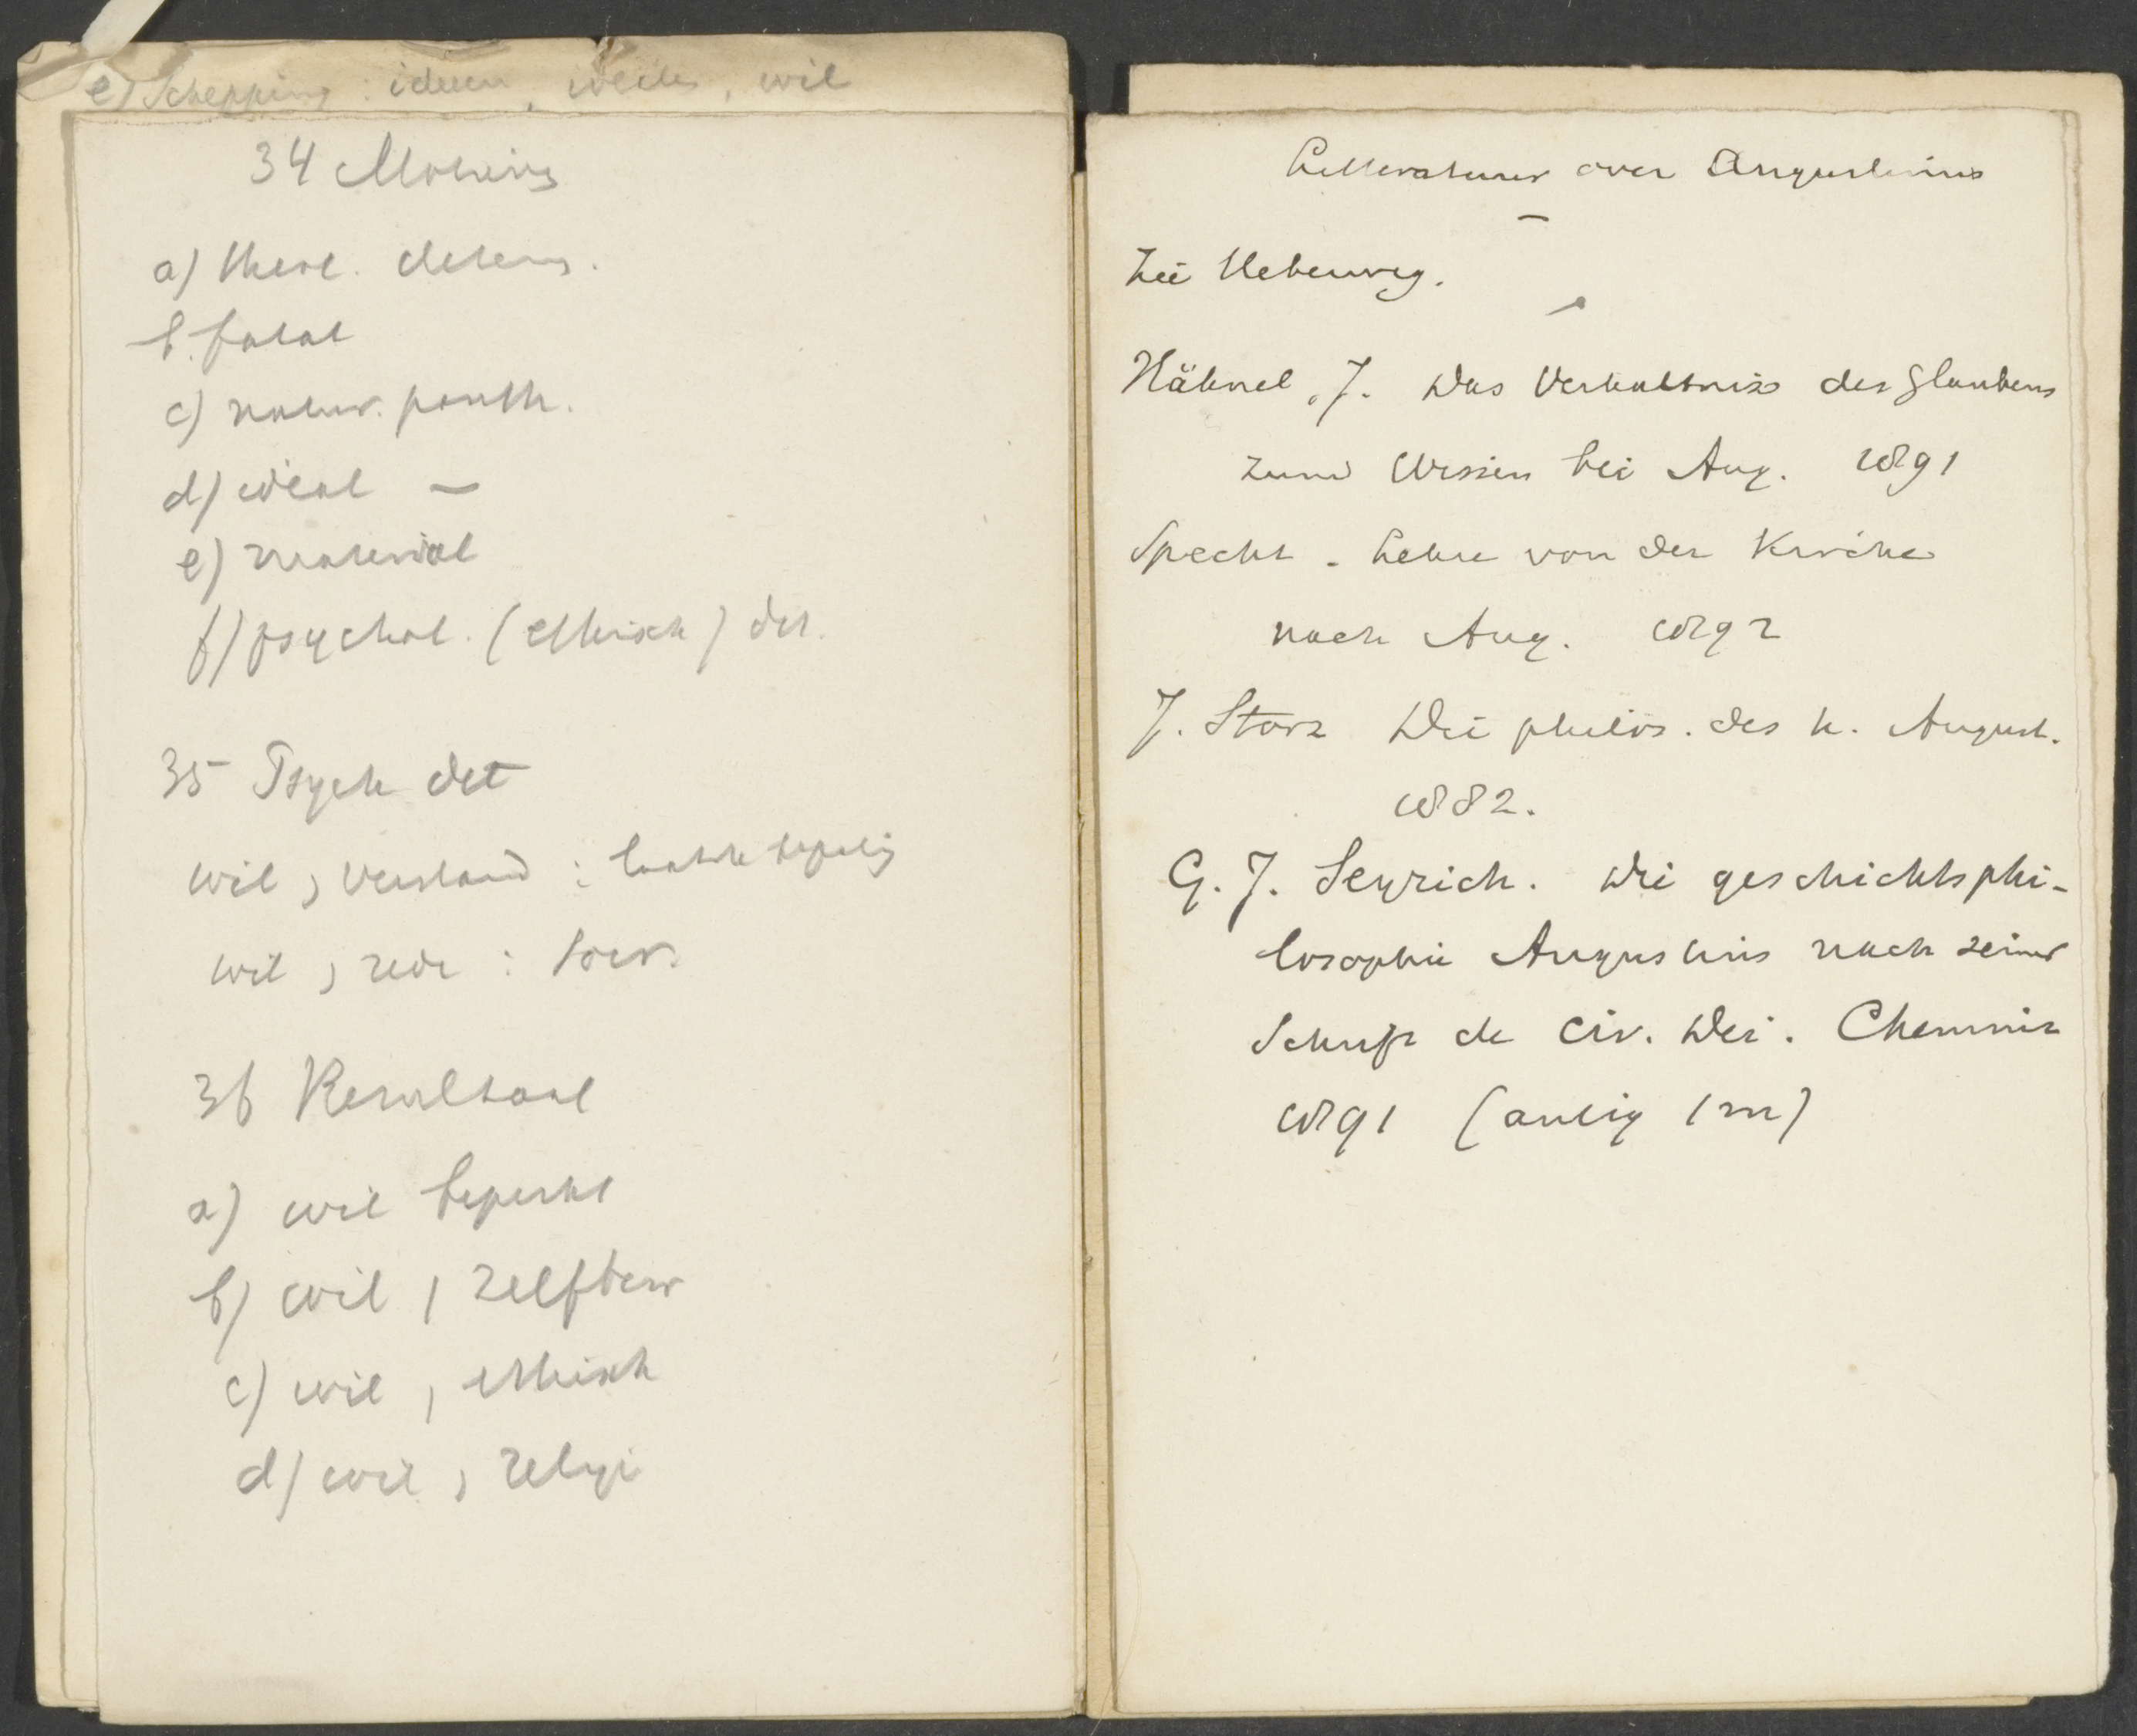 e) Schepping: ideeen, wil
34 Motiving
a) theol. determ.
b. fatal
c) natur. panth.
d) ideal —
e) material
f) psychol. (ethisch) det.
35 Psych det
wil, verstand: laatste bepaling
wil, rede:
36 Resultaat
a) wil beperkt
b) wil, zelfbew
c) wil, ethisch
d) wil, religi
Litteratuur over Augustinus
—
Zie Ueberweg.
Hähnel, J. Das Verhaltniss des Glaubens
zum Wissen bei Aug. 1891
Specht. Lehre von der Kirche
nach Aug. 1892
J. Storz Die philos. des h. August.
1882.
G. J. Seyrich. Die geschichtsphi-
losophie Augustins nach seiner
Schrift de Civ. Dei. Chemnitz
1891 (1 m)